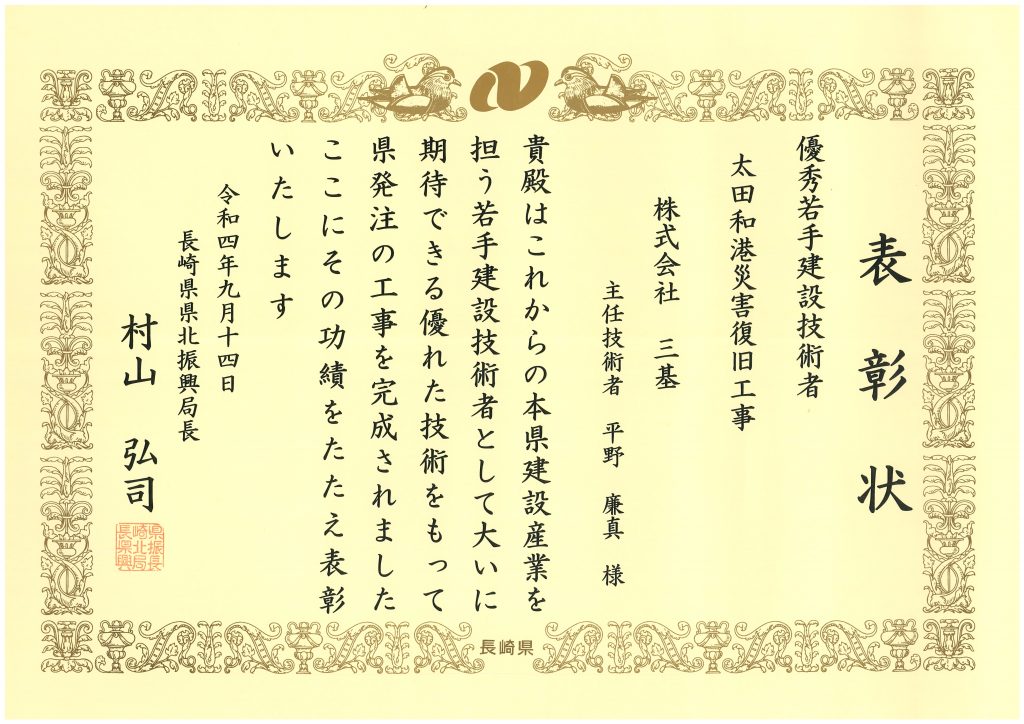 表彰状
優秀若手建設技術者
太田和港災害復旧工事
株式会社　三基
主任技術者　平野　廉真　様
貴殿はこれからの本県建設産業を
担う若手建設技術者として大いに
期待できる優れた技術をもって
県発注の工事を完成されました
ここにその功績をたたえ表彰
いたします
令和四年九月十四日
長崎県県北振興局長
村山　弘司
県振長
崎北局
長県興
長崎県